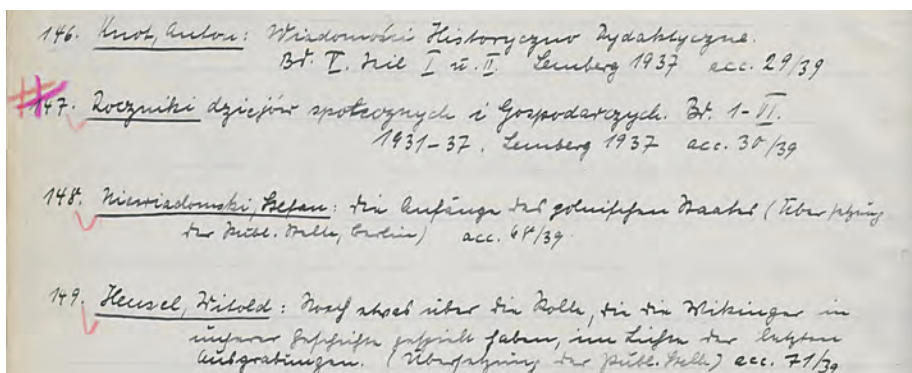 146. Knot, Anton: Wiadomości Historyczno Dydaktyczne.
Bd. V. Teil I u. II. Lemberg 1937 acc. 29/39
147. Roczniki dziejów społecznych i Gospodarczych. Bd. 1-VI.
1931-37, Lemberg 1937 acc. 30/39
148. Niewiadomski, Stefan: Die Anfänge des polnischen Staates (Übersetzung
der Publ. Stelle, Berlin) acc. 68/39
149. Hensel, Witold: Noch etwas über die Rolle, die die Wikinger in
unserer Geschichte gespielt haben, im Lichte der letzten
Ausgrabungen. (Übersetzung der Publ. Stelle) acc. 71/39